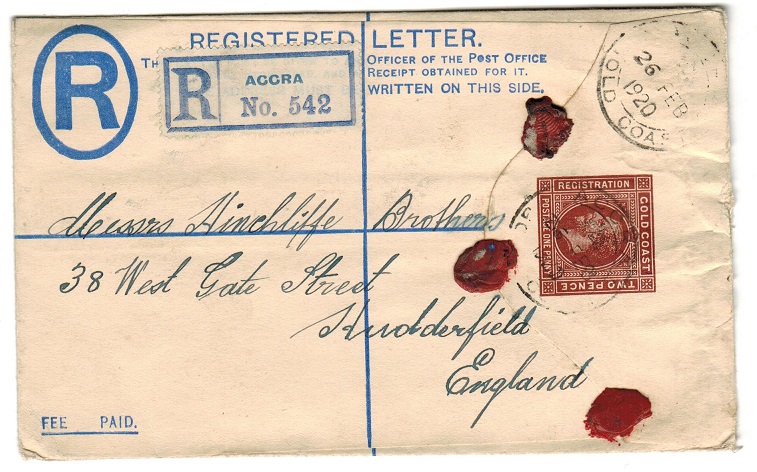 REGISTERED LETTER.
R
TH
OFFICER OF THE POST OFFICE
RECEIPT OBTAINED FOR IT.
WRITTEN ON THIS SIDE.
R
ACCRA
No. 542
26 FEB
1920
GOLD COAST
Messrs Hinchliffe Brothers
38 West Gate Street
Hudderfield
England
REGISTRATION
GOLD COAST
TWO PENCE
POSTAGE ONE PENNY
FEE PAID.